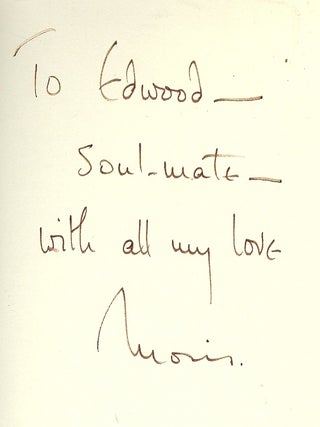 To Edwood —
Soul-mate —
with all my love
Moris.